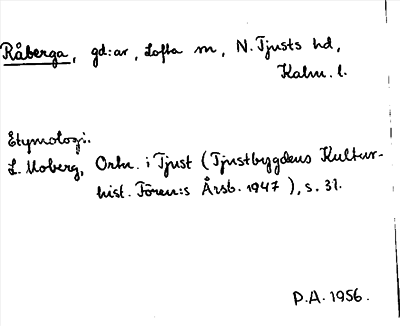 Råberga, gd:ar, Lofta sn, N. Tjusts hd,
Kalm. l.
Etymologi:
L. Moberg, Ortn. i Tjust (Tjustbygdens Kultur-
hist. Fören:s Årsb. 1947), s. 31.
P.A. 1956.